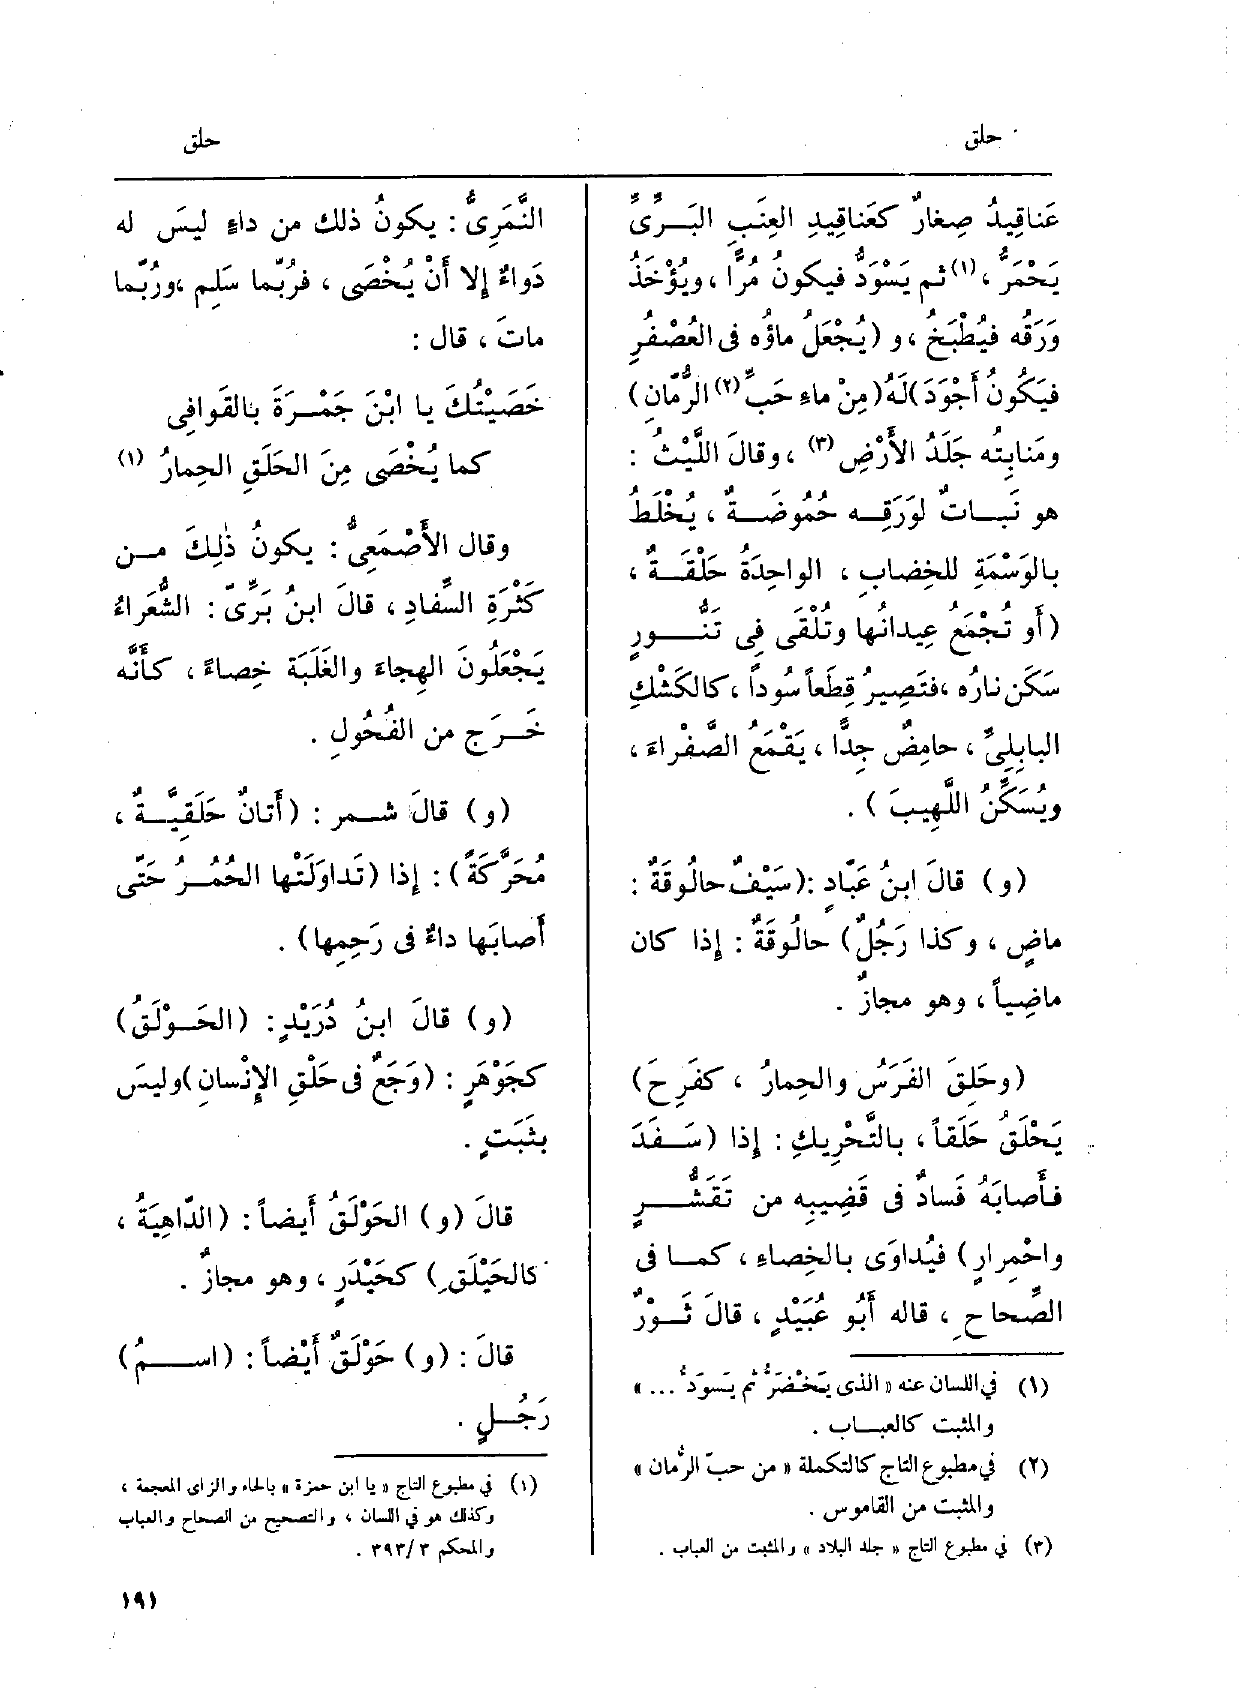 حلق
حلق
عَناقِيدُ صِغارٌ كعَناقِيدِ العِنَبِ البَرِّىِّ
يَحْمَرُّ ،(١) ثم يَسْوَدُّ فيكونُ مُرًّا ، ويُؤْخَذُ
وَرَقُه فيُطْبَخُ ، و (يُجْعَلُ ماؤُه فى العُصْفُرِ
فيَكُونُ أَجْوَدَ) لَهُ (مِنْ ماءِ حَبِّ (٢) الرُّمّانِ)
ومَنابِتُه جَلَدُ الأَرْضِ (٣) ، وقالَ اللَّيْثُ :
هو نَباتٌ لوَرَقِه حُمُوضَةٌ ، يُخْلَطُ
بالوَسْمَةِ للخِضابِ ، الواحِدَةُ حَلْقَةٌ ،
(أَو تُجْمَع عِيدانُها وتُلْقَى فِى تَنُّورٍ
سَكَن نارُه ،فتَصِيرُ قِطَعاً سُوداً ، كالكَشْكِ
البابِلِىِّ ، حامِضٌ جِدًّا ، يَقْمَعُ الصَّفْراءَ ،
ويُسَكِّنُ اللَّهِيبَ ) .
(و) قالَ ابنُ عَبّادٍ :(سَيْفٌ حالُوقَةٌ :
ماضٍ ، وكذا رَجُلٌ) حالُوقَةٌ : إِذا كان
ماضِياً ، وهو مجازٌ .
(وحَلِقَ الفَرَسُ والحِمارُ ، كفَرِحَ)
يَحْلَقُ حَلَقاً ، بالتَّحْرِيكِ : إِذا (سَفَدَ
فأَصابَهُ فَسادٌ فى قَضِيبِه من تَقَشُّرٍ
واحْمِرارٍ) فيُداوَى بالخِصاءِ ، كما فى
الصِّحاحِ ، قاله أَبُو عُبَيْدٍ ، قالَ ثَوْرٌ
(١) فى اللسان عنه « الذى يَخْضَرُّ ثم يَسوَدُّ ... »
والمثبت كالعباب .
(٢) فى مطبوع التاج كالتكملة « من حبّ الرُّمان »
والمثبت من القاموس .
(٣) فى مطبوع التاج « جلد البلاد » والمثبت من العباب .
النَّمَرِىُّ : يكونُ ذلك من داءٍ ليسَ له
دَواءٌ إِلا أَنْ يُخْصَى ، فرُبَّما سَلِم ،ورُبَّما
ماتَ ، قال :
خَصَيْتُكَ يا ابْنَ جَمْرَةَ بالقَوافِى
كما يُخْصَى مِنَ الحَلَقِ الحِمارُ (١)
وقال الأَصْمَعِىُّ : يكونُ ذٰلِكَ من
كَثْرَةِ السِّفادِ ، قالَ ابنُ بَرِّىّ : الشُّعَراءُ
يَجْعَلُونَ الهِجاءَ والغَلَبَة خِصاءً ، كأَنَّه
خَرَج من الفُحُولِ .
(و) قالَ شمر : (أَتانٌ حَلَقِيَّةٌ ،
مُحَرَّكَةً) : إِذا (تَداوَلَتْها الحُمُرُ حَتَّى
أَصابَها داءٌ فى رَحِمِها) .
(و) قالَ ابنُ دُرَيْدٍ : (الحَوْلَقُ)
كجَوْهَرٍ : (وَجَعٌ فى حَلْقِ الإِنْسانِ) وليسَ
بثَبَتٍ .
قالَ (و) الحَوْلَقُ أَيضاً : (الدّاهِيَةُ ،
كالحَيْلَقِ) كحَيْدَرٍ ، وهو مجازٌ .
قالَ : (و) حَوْلَقٌ أَيْضاً : (اسمُ)
رَجُلٍ .
(١) فى مطبوع التاج « يا ابن حمزة » بالحاء والزاى المعجمة ،
وكذلك هو فى اللسان ، والتصحيح من الصحاح والعباب
والمحكم ٣ /٣٩٣ .
١٩١